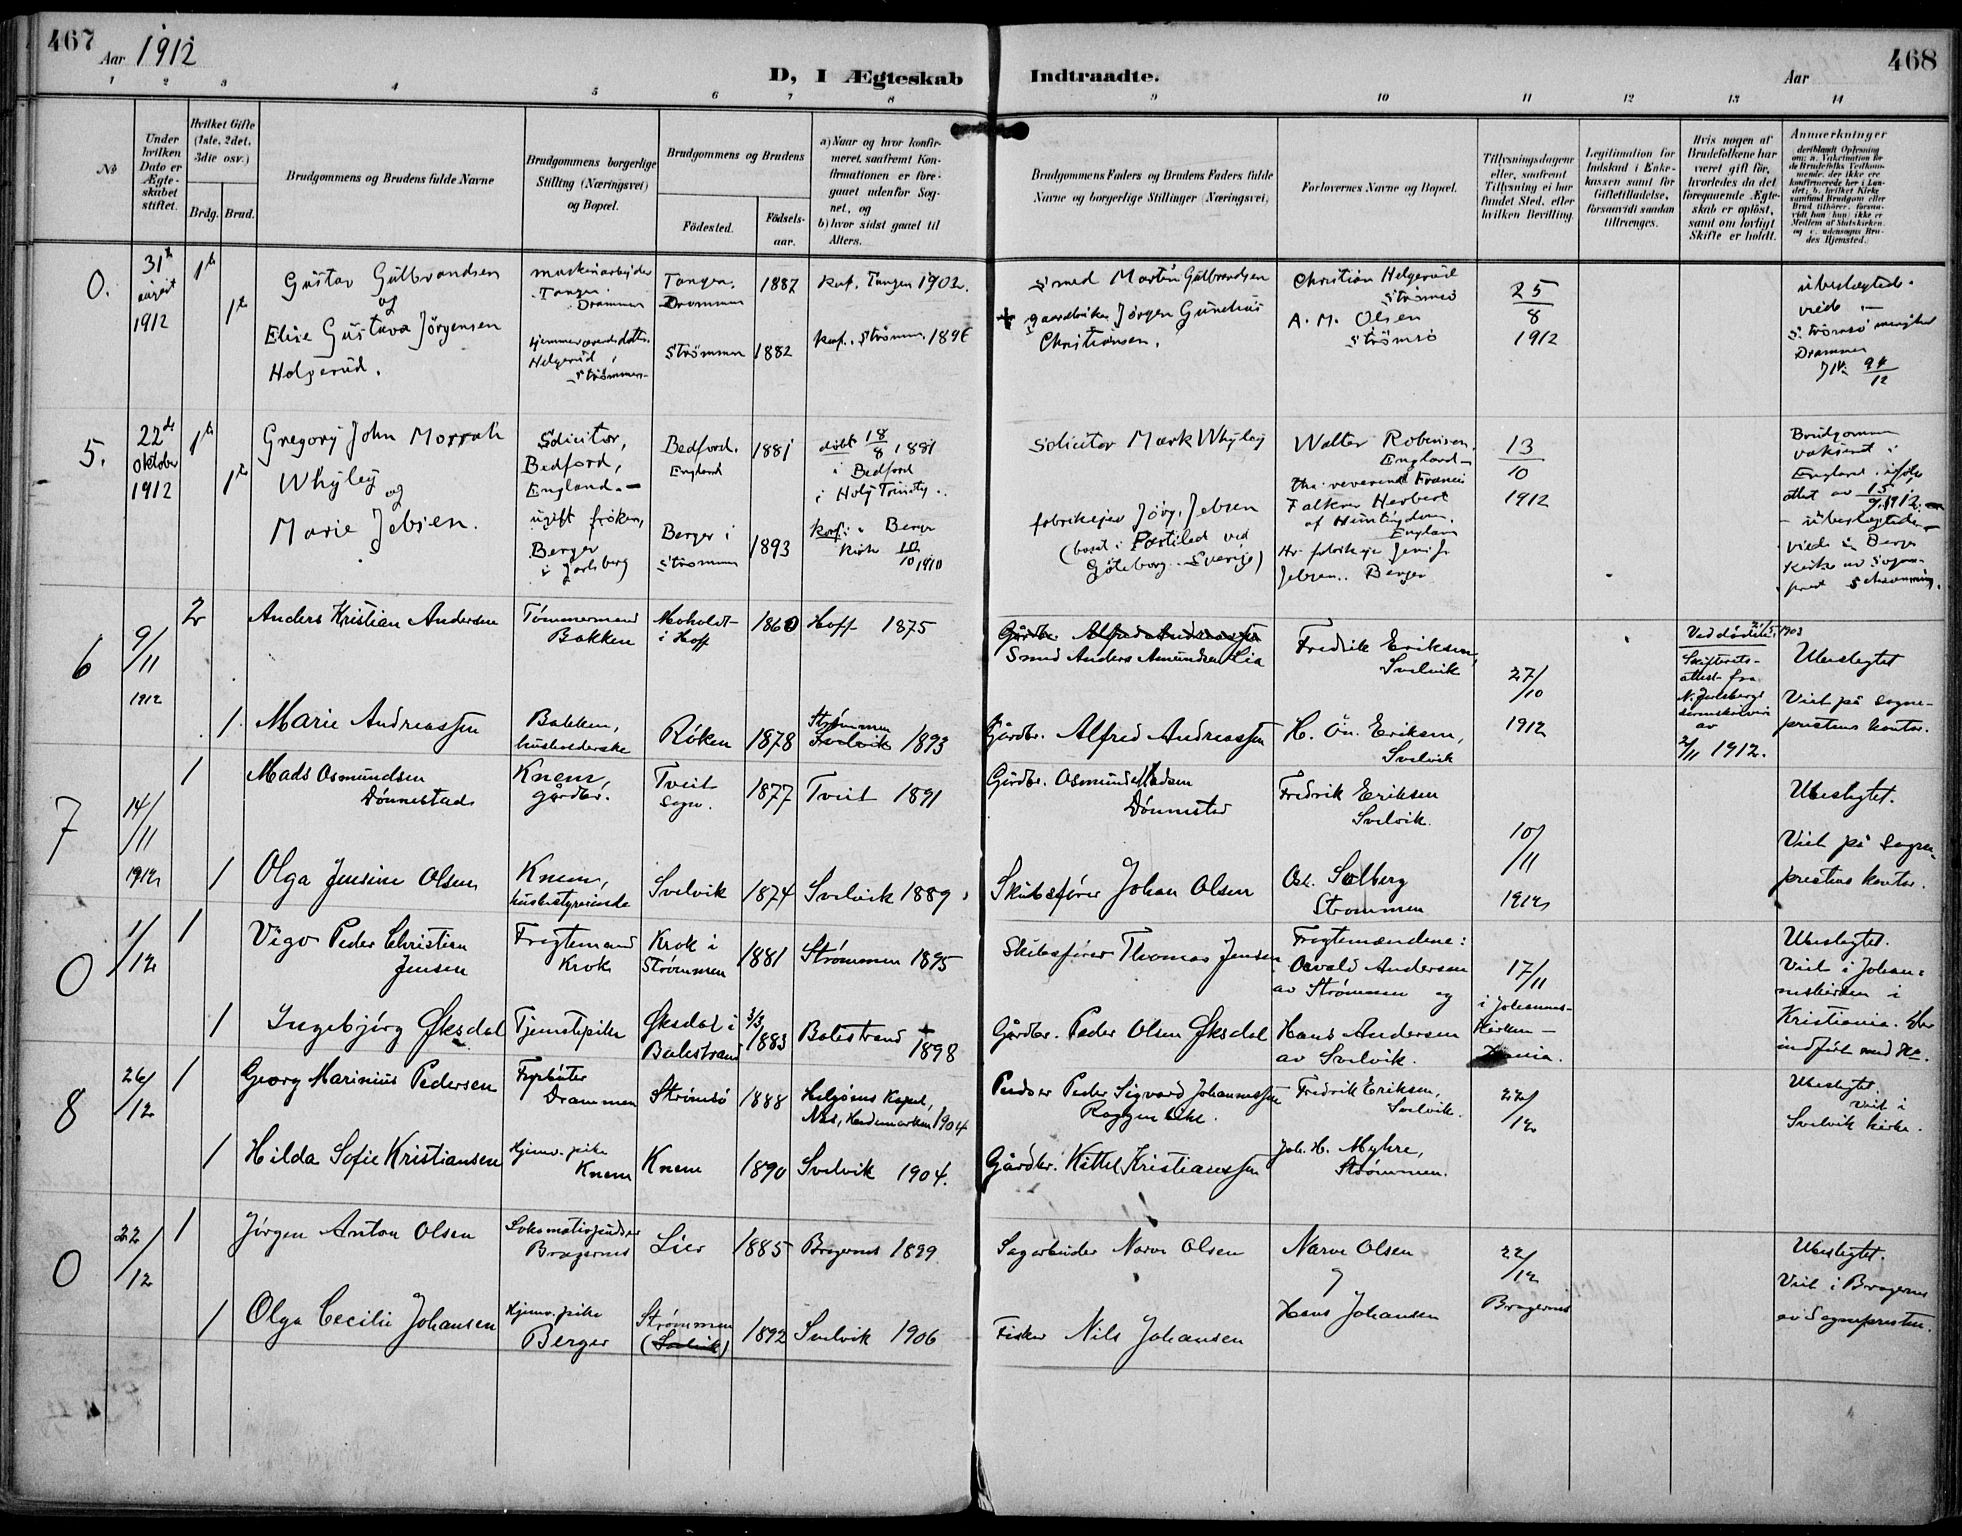 467
Aar 1912
D, I Ægteskab
Indtraadte.
Aar
468
1 2 3 4 5 6 7 8 9 10 11 12 13 14
No
Under hvilken Dato er Ægteskabet stiftet.
Hvilket Gifte (1ste, 2det, 3die osv.)
Brdg. Brud.
Brudgommens og Brudens fulde Navne
Brudgommens borgerlige Stilling (Næringsvei) og Bopæl.
Brudgommens og Brudens
Fødested.
Fødselsaar.
a) Naar og hvor konfirmeret, saafremt Konfirmationen er foregaaet udenfor Sognet, og
b) hvor sidst gaaet til Alters.
Brudgommens Faders og Brudens Faders fulde Navne og borgerlige Stillinger (Næringsvei)
Forlovernes Navne og Bopæl.
Tillysningsdagene eller, saafremt Tillysning ei har fundet Sted, efter hvilken Bevilling.
Legitimation for Indskud i Enkekassen samt for Giftetilladelse, forsaavidt saadan tiltrænges.
Hvis nogen af Brudefolkene har været gift før, hvorledes da det foregaaende Ægteskab er opløst, samt om lovligt Skifte er holdt.
Anmærkninger
0.
31te august 1912
1te
1te
Gustav Gulbrandsen
og
Elise Gustava Jörgensen
Helgerud.
Tangen.
Drammen
Tangen.
Drammen
1887
konf. Tangen 1902.
Helgerud,
Strömmen
Strömmen
1882
konf. Strömmen
smed Martin Gulbrandsen
+ gaardbruker Jörgen Gunelius
Christiansen.
Christian Helgerud
Strömsö
A. M. Olsen
Strömsö
25
8
1912
ubeslegtede.
viede i
Strömsö menighet
Drammen
5.
22de Oktober 1912
1te
1te
Gregory John Morrah
Whyley
og
Marie Jebsen.
Solicitor,
Bedford,
England.
ugift frøken,
Berger
i Jarlsberg
Bedford.
England
1881
døbt 18/8 1881
i Bedford
i Holy Trinity.
Berger i
Strømmen
1893
konf. i Berger
Kirke
10/10 1910
Solicitor Mark Whyley
fabrikejer Jörg. Jebsen
(bosat i Partiled ved
Göteborg. Sverige)
Walter Robinson.
England
the reverend Francis
Falkner Herbert
of Huntingdon.
England
Hr. fabrikeje Jens J.
Jebsen. Berger
13
10
1912
Brudgommen
vaksinert i
England ifølge
attest av 15/9 1912.
ubeslegtede
viede i Berger
Kirke av Sogneprest
6
9/11 1912
2
Anders Kristian Andersen
Tömmermand
Bakken
Moholdt
i Hoff
1860
Hoff 1875
Gårdbr. Alfred Andreassen
Smed Anders Amundsen Lia
Fredrik Eriksen,
Svelvik
27/10
1912
Ved dødsfald 1903
Skifterets-
attest fra
N. Jarlsbergs
sorenskriveri
av
2/11 1912.
Ubeslegtet
Viet på sogne-
prestens kontor.
1.
Marie Andreassen
Bakken,
husholderske
Röken
1878
Strømmen
Svelvik 1893
Gårdbr. Alfred Andreassen
H. Ön. Eriksen,
Svelvik
7
14/11
1912
1
Mads Osmundsen
Dönnestad
Knem,
gårdbr.
Tveit
sogn.
1877
Tveit 1891
Gårdbr. Osmund Madsen
Dönnestad
Fredrik Eriksen
Svelvik.
10/11
1912
Ubeslegtet.
Viet på sogne-
prestens kontor.
1
Olga Jensine Olsen
Knem,
husbestyrerinde
Svelvik
1874
Svelvik 1889
Skibsfører Johan Olsen
Osk. Solberg
Strømmen
0
1/12
1
Vigo Peder Christian
Jensen
Fragtemand
Krok
Krok i
Strømmen
1881
Strømmen 1895
Skibsfører Thomas Jensen
Fragtemændene:
Osvald Andersen
av Strømmen og
17/11
i Johannes-
kirken
Ubeslegtet.
Viet i Johan-
neskirken i
Kristiania.
1
Ingebjörg Øksdal
Tjenestepike
Øksdal i
Balestrand
3/3 1883
Balestrand
1898
Gårdbr. Peder Olsen Øksdal
Hans Andersen
av Svelvik.
8
26/12
1
Georg Marinius Pedersen
Fyrbøter
Drammen
Strömsö
1888
Helgøens Kapel,
Nes, Hedemarken 1904
Peder Sigvard Johannessen
Fredrik Eriksen,
Svelvik.
22/12
Ubeslegtet.
Viet i
Svelvik kirke.
1
Hilda Sofie Kristiansen
Hjemv. pike
Knem
Knem
1890
Svelvik 1904.
Gårdbr. Kittel Kristianssen
Joh. H. Myhre,
Strømmen.
0
22/12
1
Jörgen Anton Olsen
Lokomotivpudser
Bragernes
Lier
1885
Bragernes 1899.
Sagarbeider Narve Olsen
Narve Olsen
22/12
Bragernes
Ubeslegtet.
Viet i Bragernes
av Sognepresten.
1
Olga Cecilie Johansen
Hjemv. pike
Berger
Strømmen
(Svelvik)
1892
Svelvik 1906
Fisker Nils Johansen
Hans Johansen